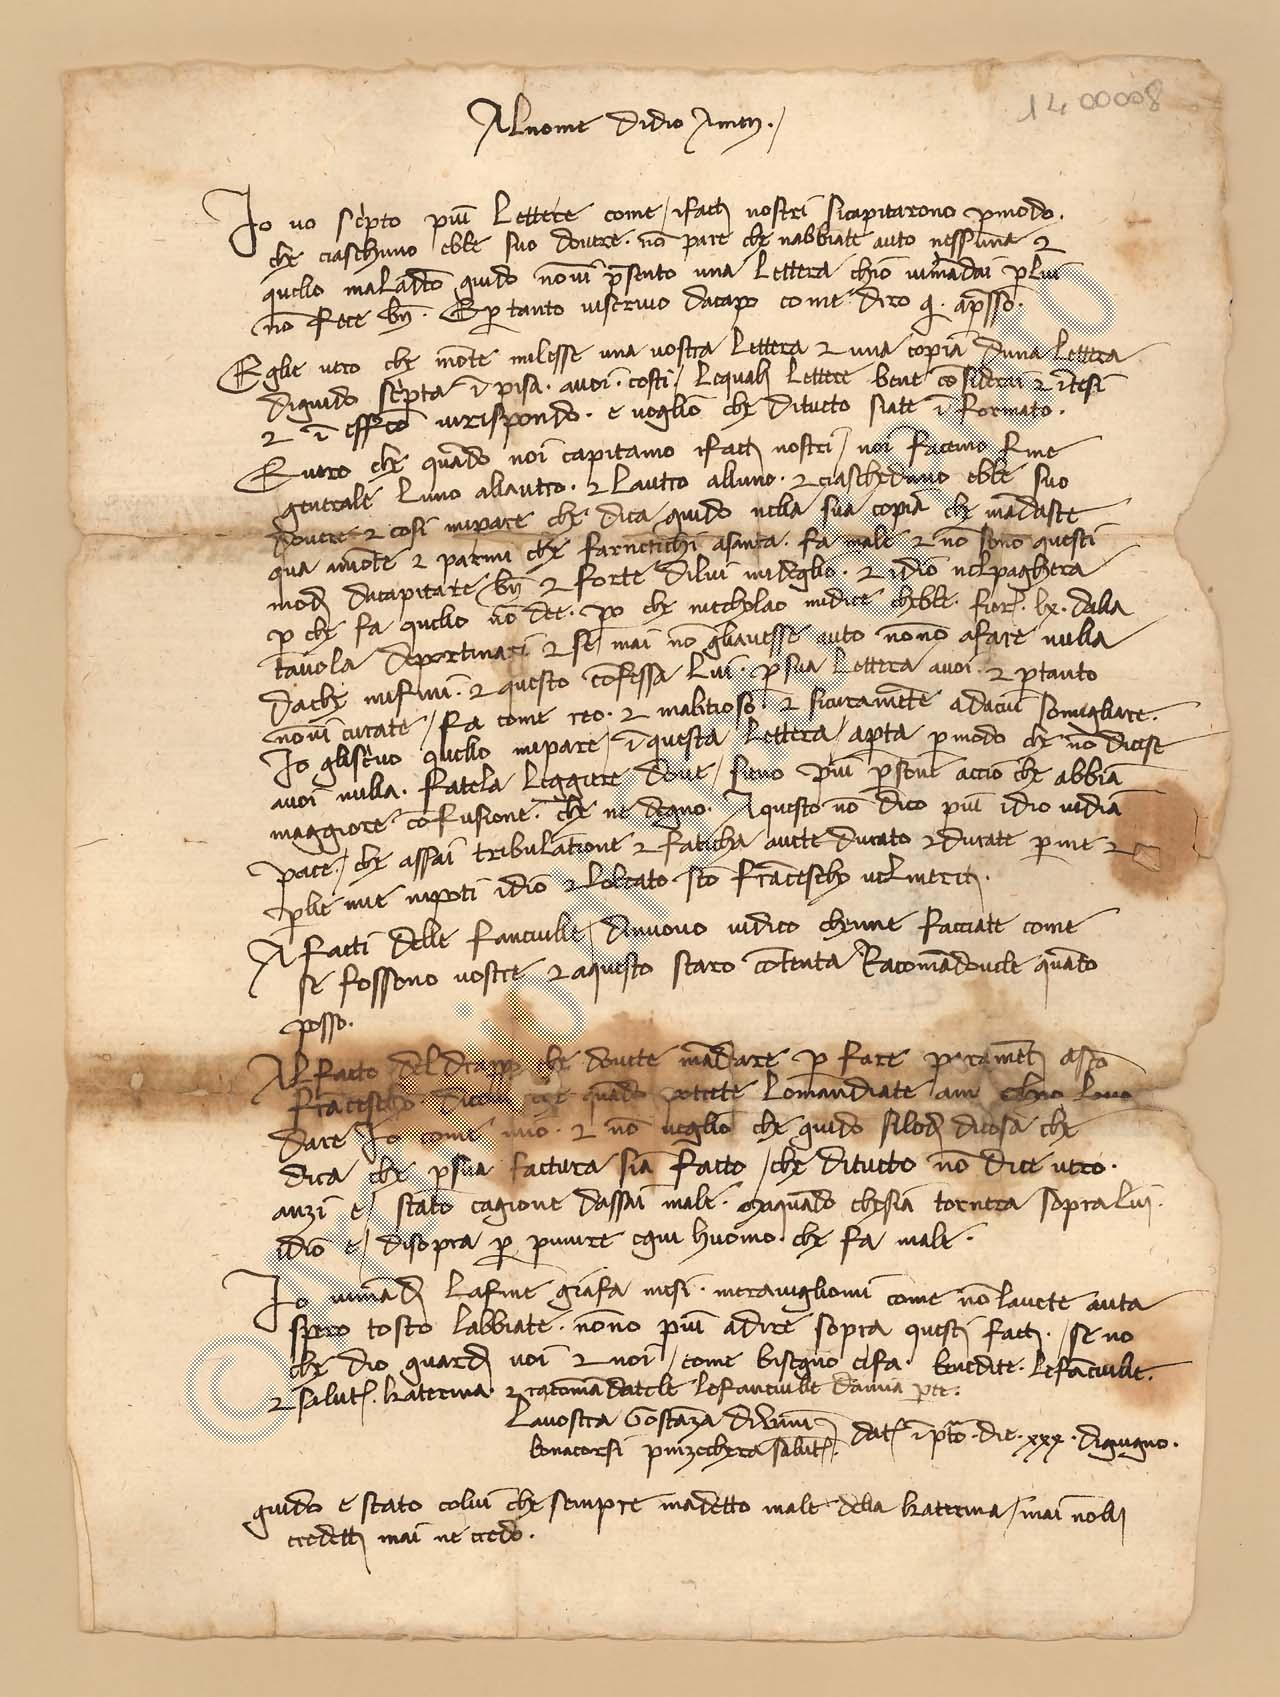 1400008
Al nome didio Amen.
Io vo scripto più lettere come ifacti nostri sicapitarono p modo.
che ciaschuno ebbe suo dovere. nō pare che nabbiate auto nessuna ⁊
quello maladecto guido novi presento una lettera chio vimādai p lui
nō fece bñ. E p tanto viscrivo dacapo come diro q. apresso.
Eglie vero che mōte milesse una vostra lettera ⁊ una copia duna lettera
diguido scripta ī pisa. avoi. costi / lequali lettere bene cōsiderai ⁊ ītesi
⁊ ī effecto virispondo. e voglio che ditucto siate īformato.
E vero che quādo noi capitamo ifacti nostri / noi facemo fine
generale luno allautro. ⁊ lautro alluno. ⁊ ciascheduno ebbe suo
dovere ⁊ cosi mipare che dica guido nella sua copia che mādaste
qua amōte ⁊ parmi che farnetichi fa male ⁊ nō sono questi
modi dacapitare bñ ⁊ forte dilui mideglio. ⁊ idio nelpaghera
p che fa quello nō dee. po che nicholao midice chebbe. fior. lx. dalla
tavola deportinari ⁊ se mai nō gliavesse auto nōno afare nulla
dache mifini. ⁊ questo cōfessa lui. p sua lettera avoi. ⁊ p tanto
novi curate / fa come reo. ⁊ malitioso. ⁊ sicuramēte adacui somigliare.
Io gliscrivo quello mipare / ī questa lettera / apta p modo che nō dicesse
avoi nulla. fatela leggiere dove / sieno più psone accio che abbia
maggiore cōfusione. che ne degno. A questo nō dico più idio vidia
pace. / che assai tribulatione ⁊ faticha avete durato ⁊ durate p me ⁊
p lle mie nipoti idio ⁊ lobeato sco frācescho velmeriti.
A facti delle fanciulle / dinuovo vidico chenne facciate come
se fossono vostre ⁊ aquesto staro cōtenta Racomādovele quāto
posso.
Al facto del drappo che dovete mādare p fare paramēti asco
frācescho quādo potete lomandiate
dare Io come mio. ⁊ nō voglio che guido silodi dicosa che
dica che p sua factura sia facto / che ditucto nō dice vero.
anzi e / stato cagione dassai male. chysia tornera sopra lui.
idio e / disopra p punire ogni huomo che fa male.
Io vimādai lafine gia fa mesi. meravigliomi come nō lavete auta
spero tosto labbiate. nōno più adire sopra questi facti. / se no
che dio guardi voi ⁊ noi / come bisogno cifa. benedite. lefāciulle.
⁊ salut. katerina. ⁊ racomādatele lefanciulle damia pte.
Lavostra Gostāza di vāni
bonacorsi pinzochera salut. dat. ī prato. die. xxx. digiugno.
guido e stato colui che sempre madetto male della katerina / mai nolli
credetti mai ne credo.